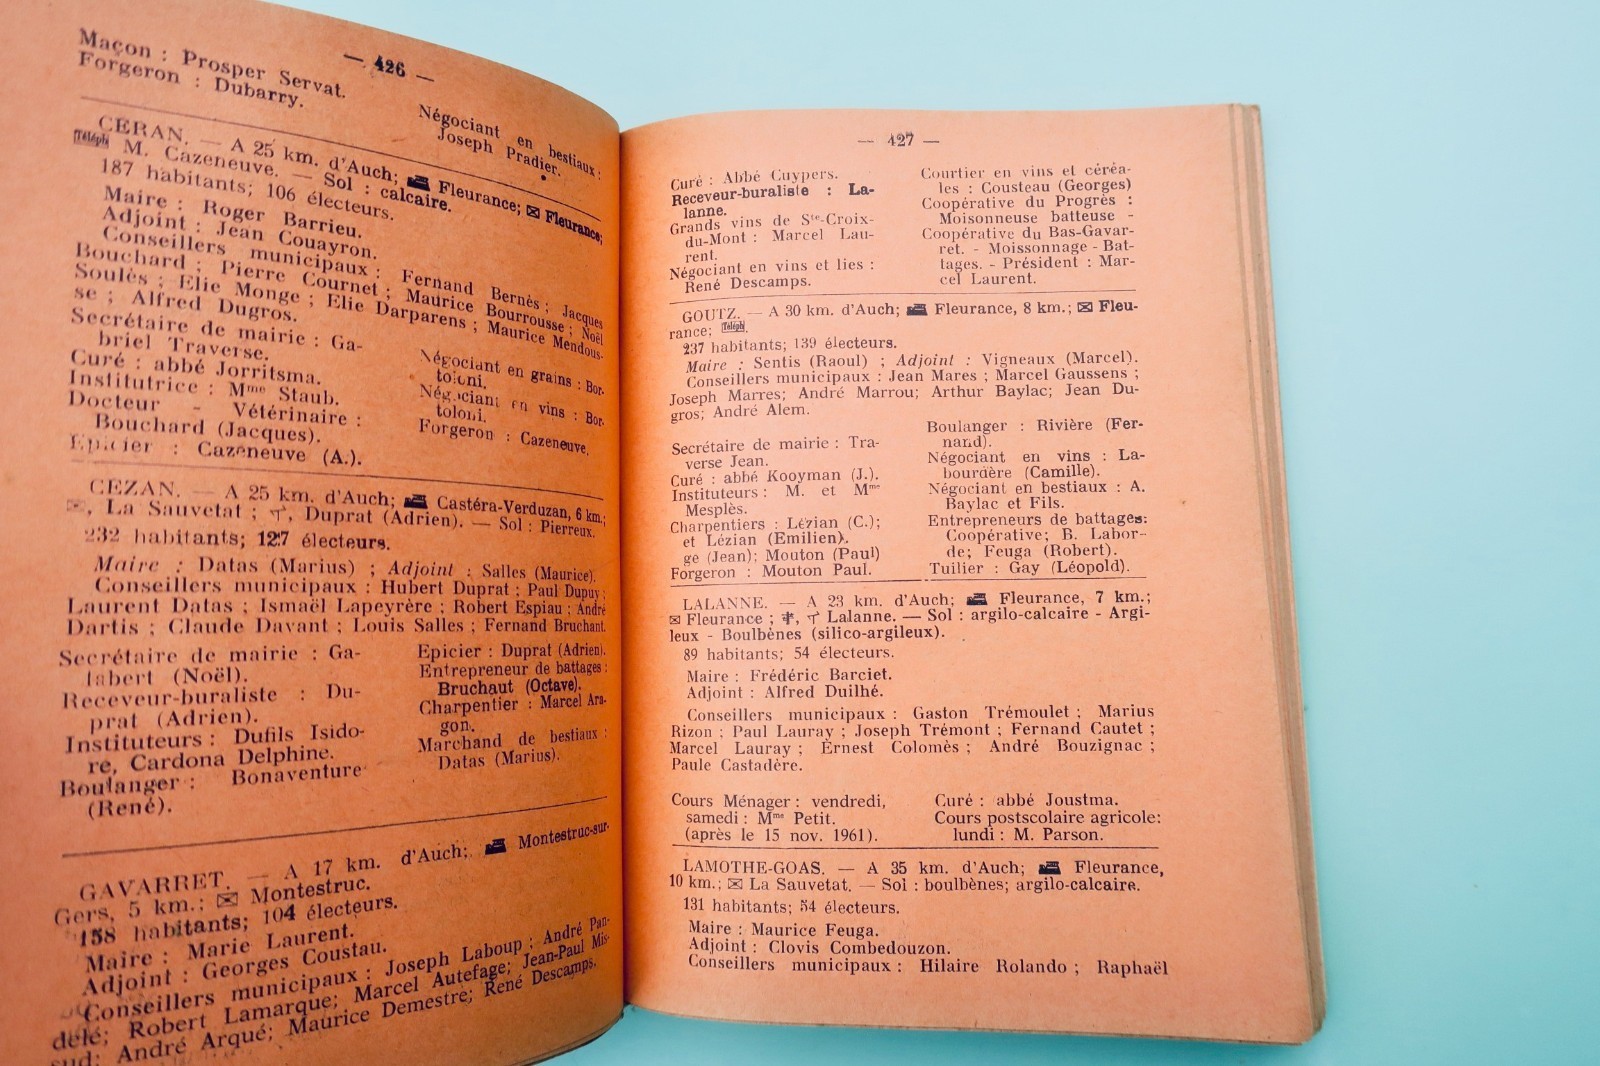 — 426 —
Maçon : Prosper Servat.
Forgeron : Dubarry.
Négociant en bestiaux :
Joseph Pradier.
CERAN. — A 25 km. d'Auch; Fleurance; Fleurance;
Téléph M. Cazeneuve. — Sol : calcaire.
187 habitants; 106 électeurs.
Maire : Roger Barrieu.
Adjoint : Jean Couayron.
Conseillers municipaux : Fernand Bernès ; Jacques
Bouchard ; Pierre Cournet ; Maurice Bourrousse ; Noël
Soulès ; Elie Monge ; Elie Darparens ; Maurice Mendous-
se ; Alfred Dugros.
Secrétaire de mairie : Ga-
briel Traverse.
Curé : abbé Jorritsma.
Institutrice : Mme Staub.
Docteur - Vétérinaire :
Bouchard (Jacques).
Epicier : Cazeneuve (A.).
Négociant en grains : Bor-
toloni.
Négociant en vins : Bor-
toloni.
Forgeron : Cazeneuve.
CEZAN. — A 25 km. d'Auch; Castéra-Verduzan, 6 km.;
, La Sauvetat ; , Duprat (Adrien). — Sol : Pierreux.
232 habitants; 127 électeurs.
Maire : Datas (Marius) ; Adjoint : Salles (Maurice).
Conseillers municipaux : Hubert Duprat ; Paul Dupuy ;
Laurent Datas ; Ismaël Lapeyrère ; Robert Espiau ; André
Dartis ; Claude Davant ; Louis Salles ; Fernand Bruchant.
Secrétaire de mairie : Ga-
labert (Noël).
Receveur-buraliste : Du-
prat (Adrien).
Instituteurs : Dufils Isido-
re, Cardona Delphine.
Boulanger : Bonaventure
(René).
Epicier : Duprat (Adrien).
Entrepreneur de battages :
Bruchaut (Octave).
Charpentier : Marcel Ara-
gon.
Marchand de bestiaux :
Datas (Marius).
GAVARRET. — A 17 km. d'Auch; Montestruc-sur-
Gers, 5 km.; Montestruc.
158 habitants; 104 électeurs.
Maire : Marie Laurent.
Adjoint : Georges Coustau.
Conseillers municipaux : Joseph Laboup ; André Pan-
delé; Robert Lamarque; Marcel Autefage; Jean-Paul Mis-
sud; André Arqué; Maurice Demestre; René Descamps.
— 427 —
Curé : Abbé Cuypers.
Receveur-buraliste : La-
lanne.
Grands vins de Ste-Croix-
du-Mont : Marcel Lau-
rent.
Négociant en vins et lies :
René Descamps.
Courtier en vins et céréa-
les : Cousteau (Georges)
Coopérative du Progrès :
Moisonneuse batteuse -
Coopérative du Bas-Gavar-
ret. - Moissonnage - Bat-
tages. - Président : Mar-
cel Laurent.
GOUTZ. — A 30 km. d'Auch; Fleurance, 8 km.; Fleu-
rance; Téléph.
237 habitants; 139 électeurs.
Maire : Sentis (Raoul) ; Adjoint : Vigneaux (Marcel).
Conseillers municipaux : Jean Mares ; Marcel Gaussens ;
Joseph Marres; André Marrou; Arthur Baylac; Jean Du-
gros; André Alem.
Secrétaire de mairie : Tra-
verse Jean.
Curé : abbé Kooyman (J.).
Instituteurs : M. et Mme
Mesplès.
Charpentiers : Lézian (C.);
et Lézian (Emilien).
ge (Jean); Mouton (Paul)
Forgeron : Mouton Paul.
Boulanger : Rivière (Fer-
nand).
Négociant en vins : La-
bourdère (Camille).
Négociant en bestiaux : A.
Baylac et Fils.
Entrepreneurs de battages:
Coopérative; B. Labor-
de; Feuga (Robert).
Tuilier : Gay (Léopold).
LALANNE. — A 23 km. d'Auch; Fleurance, 7 km.;
Fleurance ; , Lalanne. — Sol : argilo-calcaire - Argi-
leux - Boulbènes (silico-argileux).
89 habitants; 54 électeurs.
Maire : Frédéric Barciet.
Adjoint : Alfred Duilhé.
Conseillers municipaux : Gaston Trémoulet ; Marius
Rizon ; Paul Lauray ; Joseph Trémont ; Fernand Cautet ;
Marcel Lauray ; Ernest Colomès ; André Bouzignac ;
Paule Castadère.
Cours Ménager : vendredi,
samedi : Mme Petit.
(après le 15 nov. 1961).
Curé : abbé Joustma.
Cours postscolaire agricole:
lundi : M. Parson.
LAMOTHE-GOAS. — A 35 km. d'Auch; Fleurance,
10 km.; La Sauvetat. — Sol : boulbènes; argilo-calcaire.
131 habitants; 54 électeurs.
Maire : Maurice Feuga.
Adjoint : Clovis Combedouzon.
Conseillers municipaux : Hilaire Rolando ; Raphaël